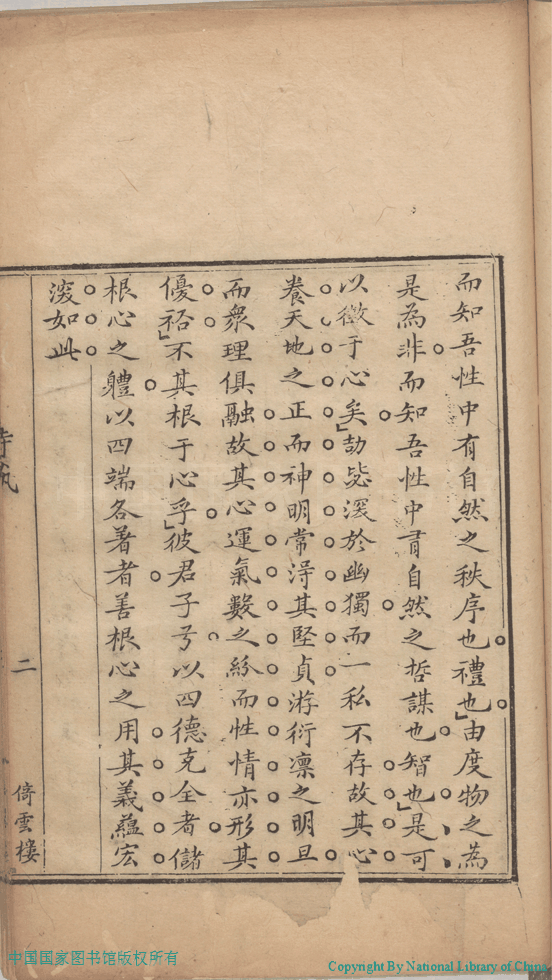 而知吾性中有自然之秩序也禮也由度物之為
是為非而知吾性中有自然之哲謀也智也是可
以徵于心矣劼毖深於幽獨而一私不存故其心
養天地之正而神明常淂其堅貞游衍凛之明旦
而衆理俱融故其心運氣數之紛而性情亦形其
優裕不其根于心乎彼君子兮以四德克全者儲
根心之軆以四端各著者善根心之用其義蘊宏
深如此
二
倚雲樓
中国国家图书馆版权所有
Copyright By National Library of China